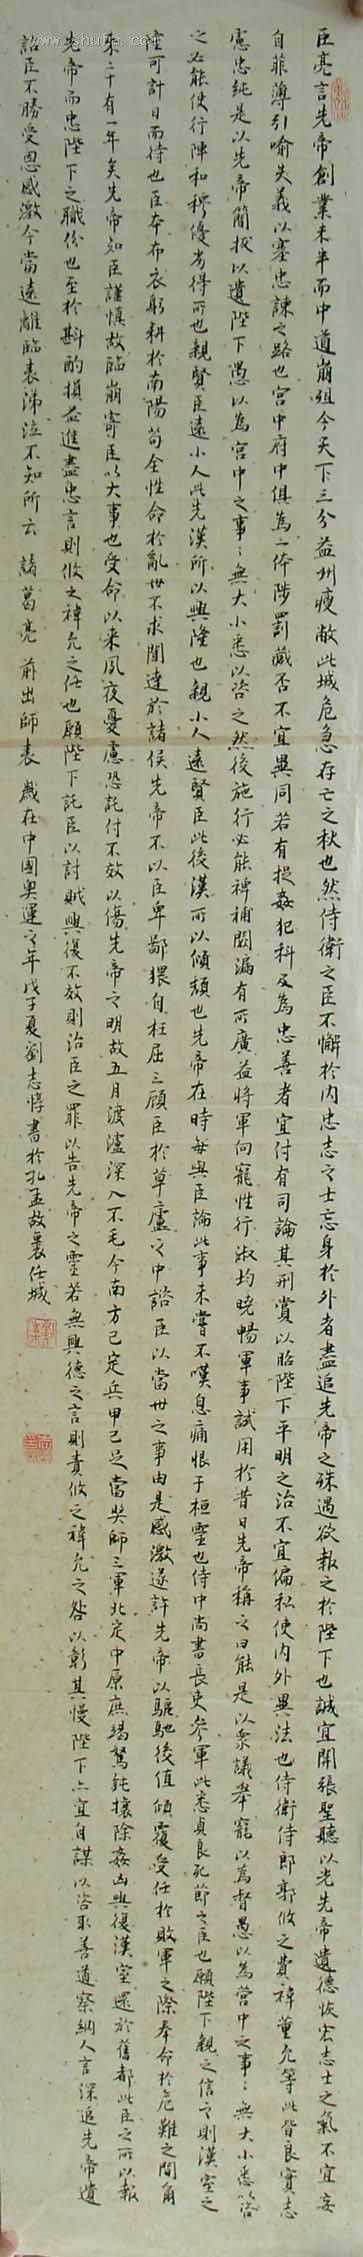 臣亮言先帝創業未半而中道崩殂今天下三分益州疲敝此城危急存亡之秋也然侍衛之臣不懈於內忠志之士忘身於外者盡追先帝之殊遇欲報之於陛下也誠宜開張聖聽以光先帝遺德恢宏志士之氣不宜妄
自菲薄引喻失義以塞忠諫之路也宮中府中俱為一体陟罰臧否不宜異同若有作姦犯科及為忠善者宜付有司論其刑賞以昭陛下平明之治不宜偏私使內外異法也侍衛侍郎郭攸之費禕董允等此皆良實志
憲忠純是以先帝簡拔以遺陛下愚以為宮中之事々無大小悉以咨之然後施行必能裨補闕漏有所廣益將軍向寵性行淑均曉暢軍事試用於昔日先帝稱之曰能是以眾議舉寵以為督愚以為營中之事々無大小悉以咨
之必能使行陣和穆優劣得所也親賢臣遠小人此先漢所以興隆也親小人遠賢臣此後漢所以傾頹也先帝在時每與臣論此事未嘗不嘆息痛恨于桓靈也侍中尚書長吏參軍此悉貞良死節之臣也願陛下親之信之則漢室之
隆可計日而待也臣本布衣躬耕於南陽苟全性命於亂世不求聞達於諸侯先帝不以臣卑鄙猥自枉屈三顧臣於草廬之中諮臣以當世之事由是感激遂許先帝以驅馳後值傾覆受任於敗軍之際奉命於危難之間爾
來二十有一年矣先帝知臣謹慎故臨崩寄臣以大事也受命以來夙夜憂慮恐託付不效以傷先帝之明故五月渡瀘深入不毛今南方已定兵甲已足當獎師三軍北定中原庶竭駑鈍攘除姦凶興復漢室還於舊都此臣之所以報
先帝而忠陛下之職份也至於斟酌損益進盡忠言則攸之禕允之任也願陛下託臣以討賊興復不效則治臣之罪以告先帝之靈若無興德之言則責攸之禕允之咎以彰其慢陛下亦宜自謀以咨取善道察納人言深追先帝遺
詔臣不勝受恩感激今當遠離臨表涕泣不知所云 諸葛亮 前出師表 歲在中國奧運之年戊子夏劉志惇書於孔孟故裏任城